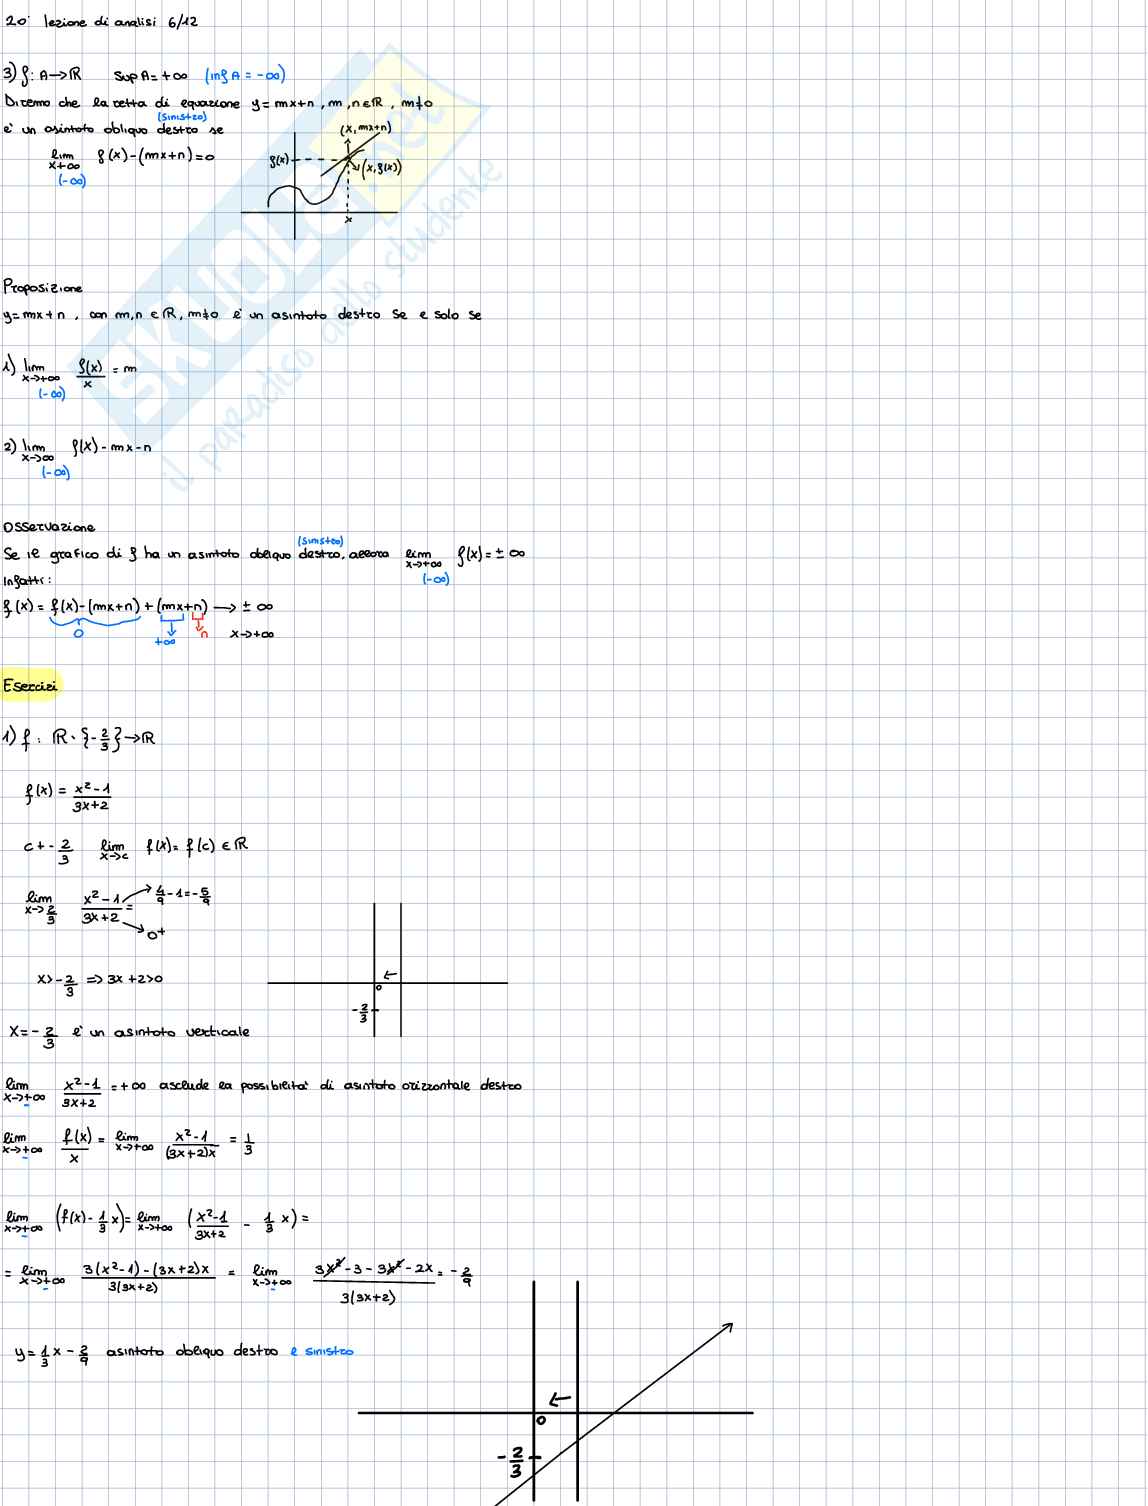 20ᵃ lezione di analisi 6/12
3) f: A→ℝ sup A = +∞ (inf A = -∞)
Diremo che la retta di equazione y = mx+n , m , n ∈ ℝ , m≠0
(sinistro)
e' un asintoto obliquo destro se
lim x→+∞ f(x)-(mx+n)=0
(-∞)
(x, mx+n)
f(x)
(x, f(x))
x
Proposizione
y=mx+n , con m,n ∈ ℝ, m≠0 e' un asintoto destro se e solo se
1) lim x→+∞ f(x)/x = m
(-∞)
2) lim x→∞ f(x)-mx-n
(-∞)
Osservazione
(sinistro)
Se il grafico di f ha un asintoto obliquo destro, allora lim x→+∞ f(x)=±∞
(-∞)
Infatti:
f(x) = f(x)-(mx+n) + (mx+n) → ±∞
0 +∞ n x→+∞
Esercizi
1) f : ℝ∖{-2/3}→ℝ
f(x) = x²-1/3x+2
c ≠ -2/3 lim x→c f(x)= f(c) ∈ ℝ
lim x→2/3 x²-1/3x+2 = 4/9 -1=-5/9
0+
x>-2/3 ⇒ 3x+2>0
0
-2/3
x=-2/3 e' un asintoto verticale
lim x→±∞ x²-1/3x+2 = +∞ esclude la possibilita' di asintoto orizzontale destro
lim x→±∞ f(x)/x = lim x→+∞ x²-1/(3x+2)x = 1/3
lim x→±∞ (f(x)-1/3 x)= lim x→+∞ (x²-1/3x+2 - 1/3 x) =
= lim x→±∞ 3(x²-1)-(3x+2)x/3(3x+2) = lim x→±∞ 3x²-3-3x²-2x/3(3x+2) = -2/9
y=1/3 x - 2/9 asintoto obliquo destro e sinistro
0
-2/3
SKUOLA.net
il paradiso dello studente